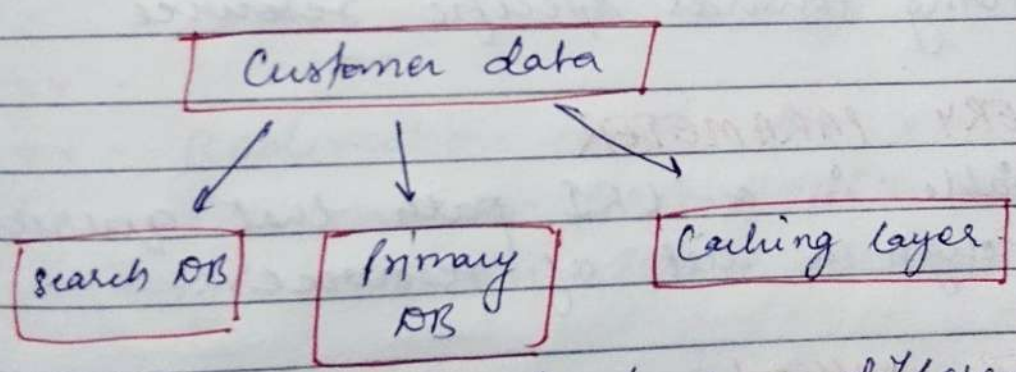 Customer data
Search DB
Primary
DB
Caching layer